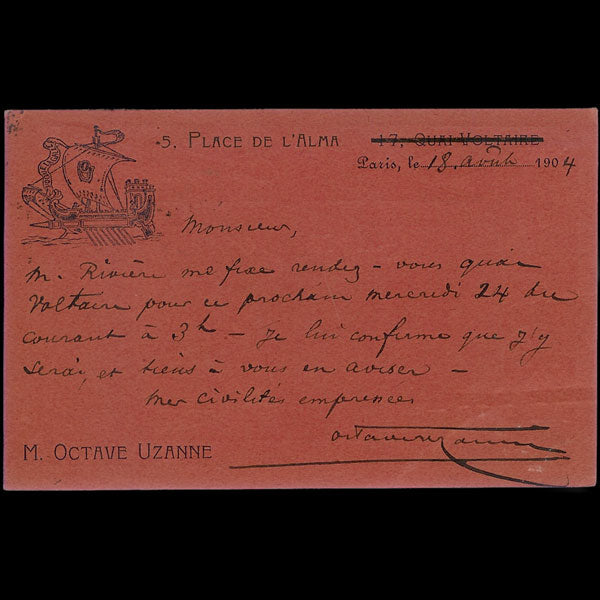 5, PLACE DE L'ALMA
17, QUAI VOLTAIRE
Paris, le 18 août 1904
Monsieur,
M. Rivière me fixe rendez-vous quai
Voltaire pour ce prochain mercredi 24 du
courant à 3h – Je lui confirme que j'y
serai, et tiens à vous en aviser –
Mes civilités empressées
Octave Uzanne
M. OCTAVE UZANNE